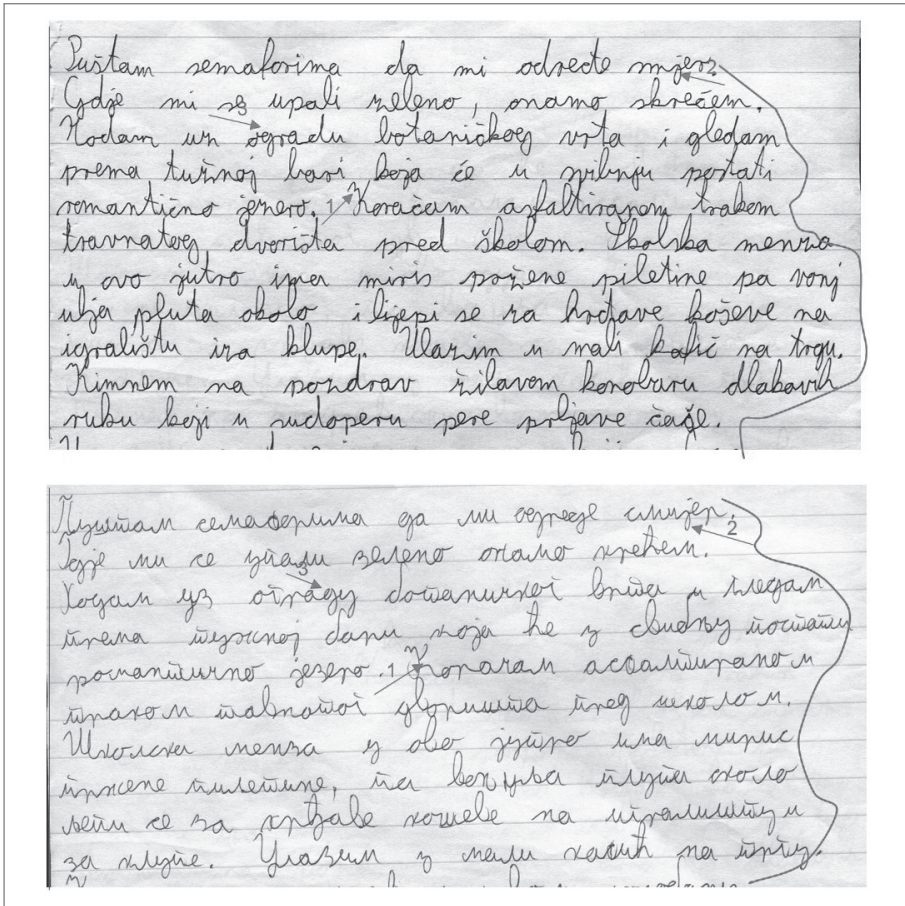 Puštam semaforima da mi odrede smjer.
2
Gdje mi se upali zeleno, onamo skrećem.
3
Hodam uz ogradu botaničkog vrta i gledam
prema tužnoj bari koja će u svibnju postati
romantično jezero. 1 Koračam asfaltiranom trakom
travnatog dvorišta pred školom. Školska menza
u ovo jutro ima miris pržene piletine pa vonj
ulja pluta okolo i lijepi se za hrđave koševe na
igralištu iza klupe. Ulazim u mali kafić na trgu.
Kimnem na pozdrav žilavom konobaru dlakavih
ruku koji u sudoperu pere prljave čaše.
Пуштам семафорима да ми одреде смијер.
2
Гдје ми се упали зелено онамо крећем.
3
Ходам уз ограду ботаничког врта и гледам
према тужној бари која ће у свибњу постати
романтично језеро. 1 Корачам асфалтираном
траком тавнатог дворишта пред школом.
Школска менза у ово јутро има мирис
пржене пилетине, па вон уља плута около
љепи се за хрђаве кошеве на игралишту и
за клупе. Улазим у мали кафић на тргу.